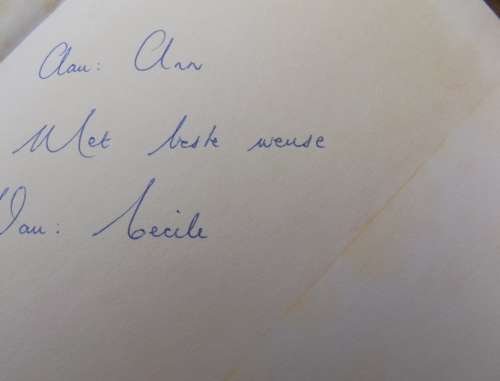 Aan: Ann
Met beste wense
Van: Cecile